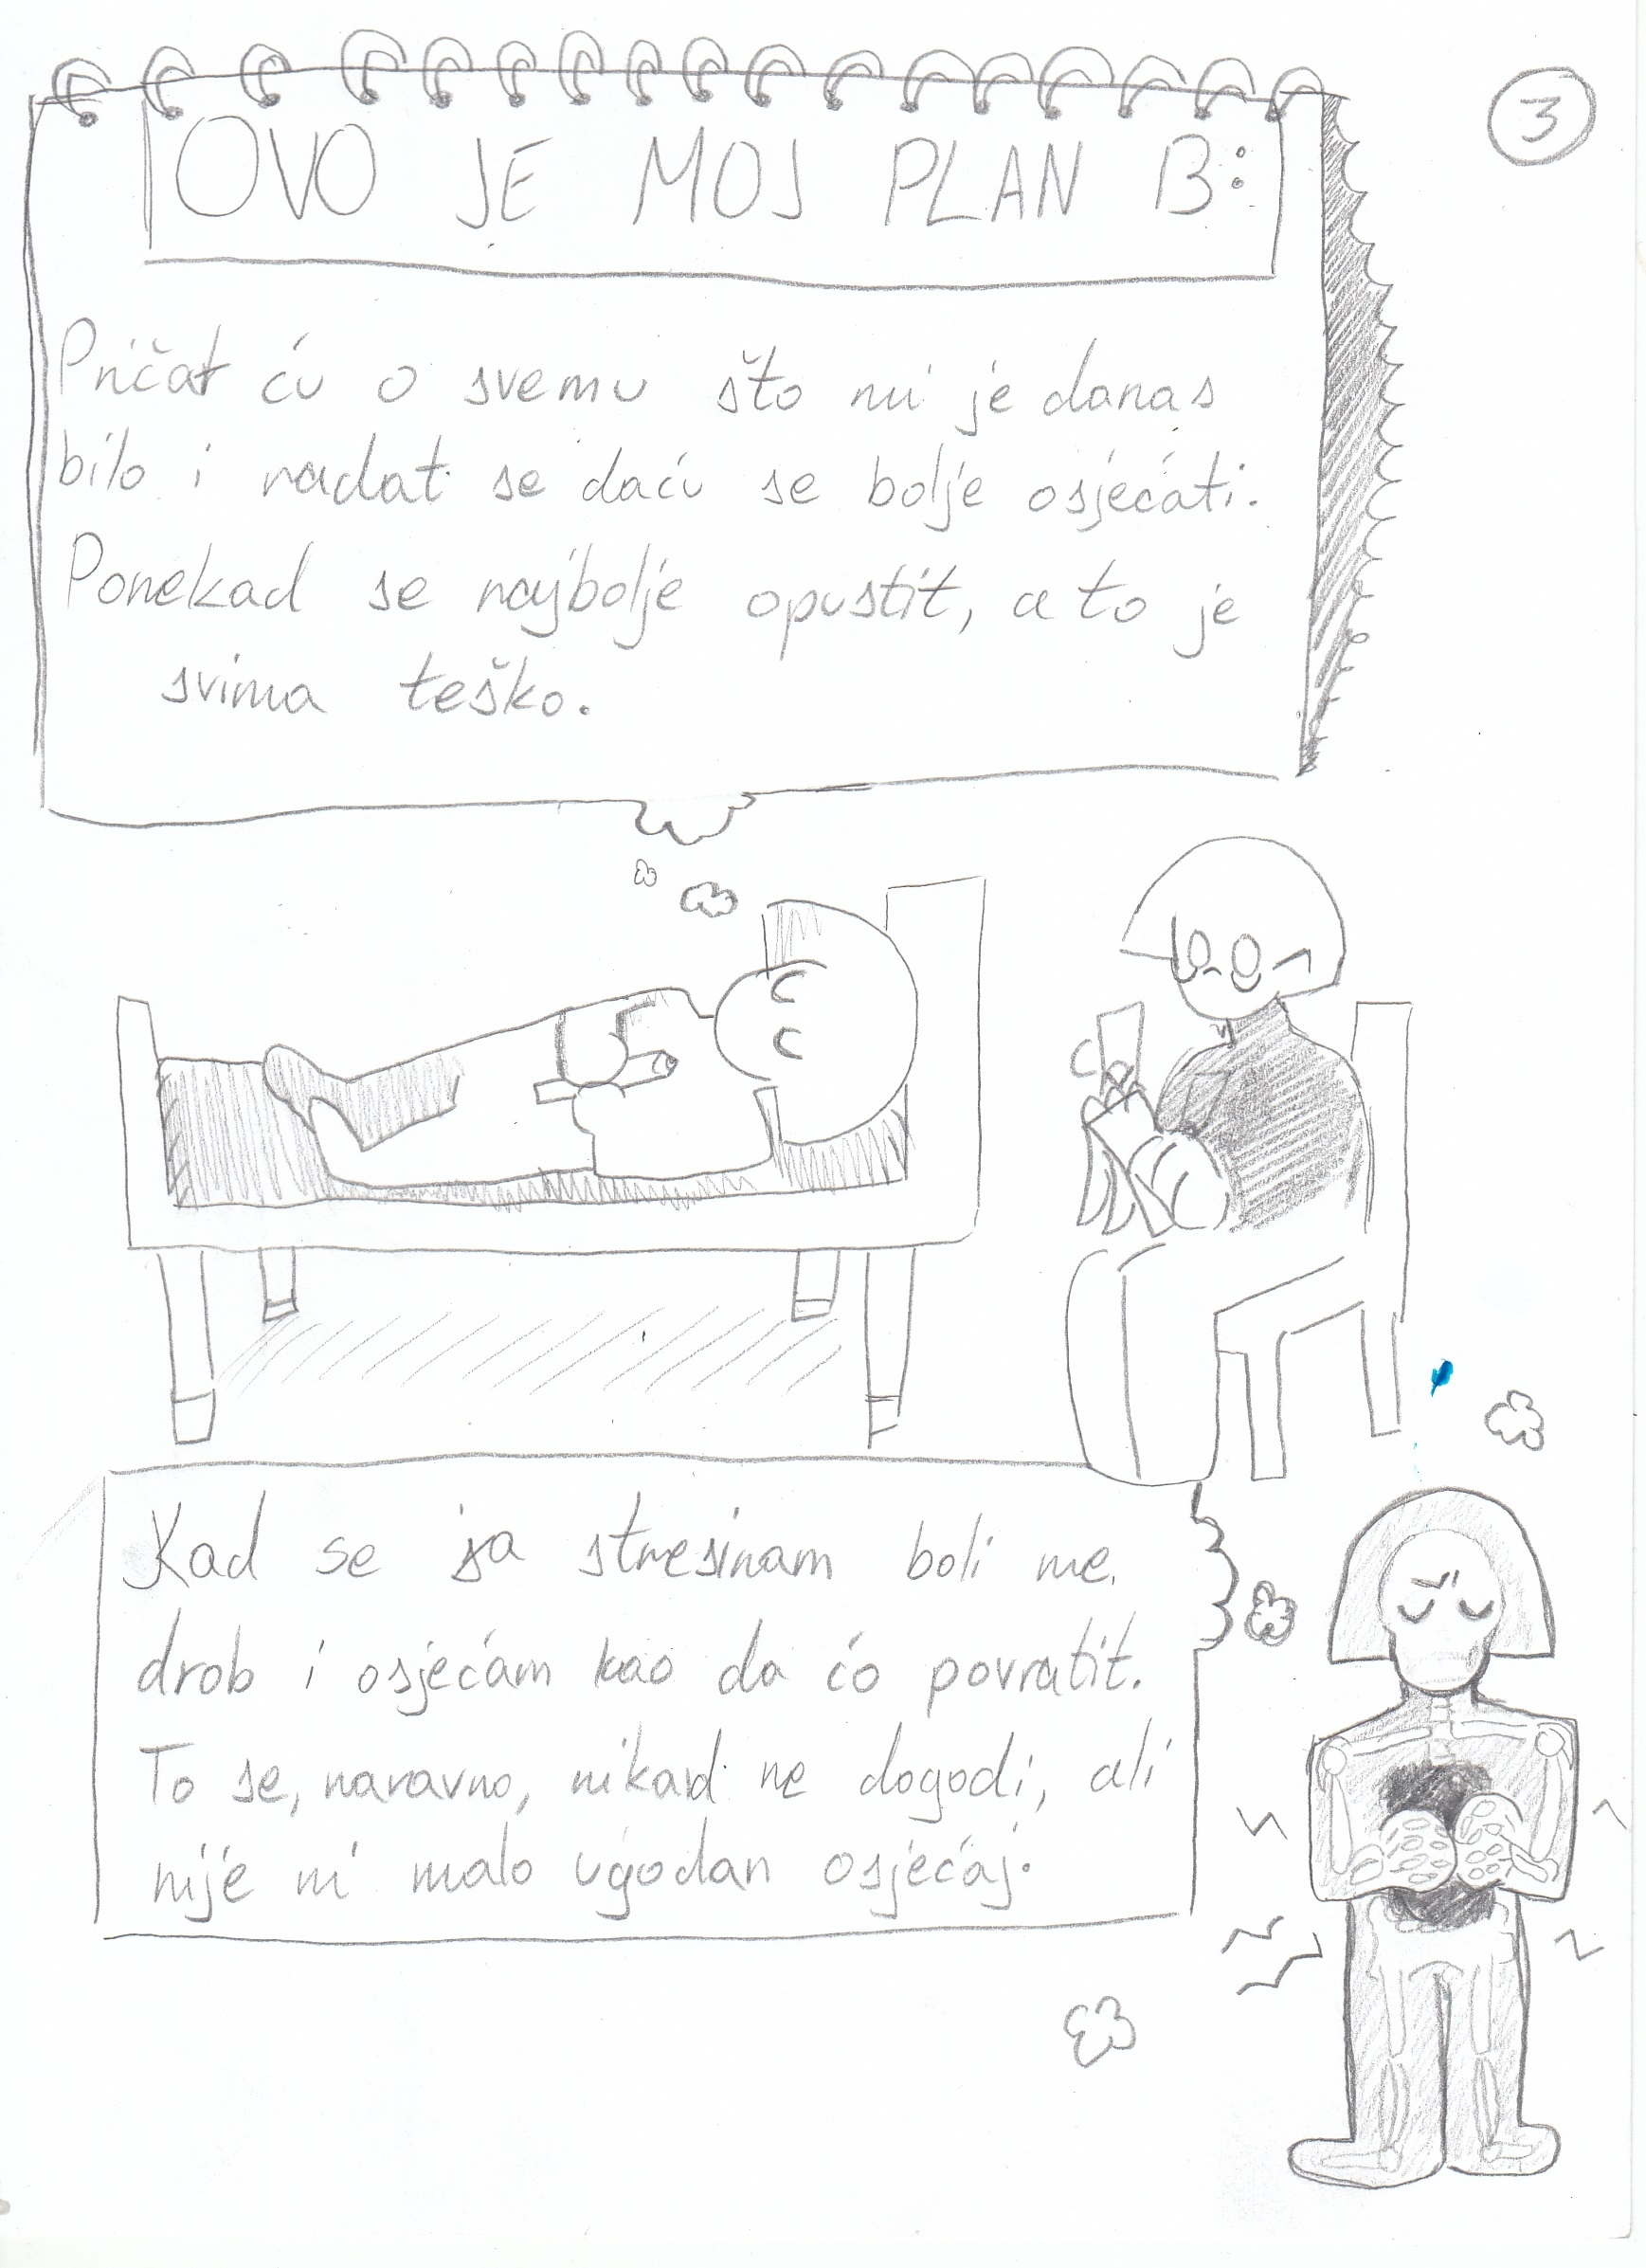 3
OVO JE MOJ PLAN B:
Pričat ću o svemu što mi je danas
bilo i nadat se da ću se bolje osjećati.
Ponekad se najbolje opustit, a to je
svima teško.
Kad se ja stresiram boli me
drob i osjećam kao da ćo povratit.
To se, naravno, nikad ne dogodi, ali
nije ni malo ugodan osjećaj.